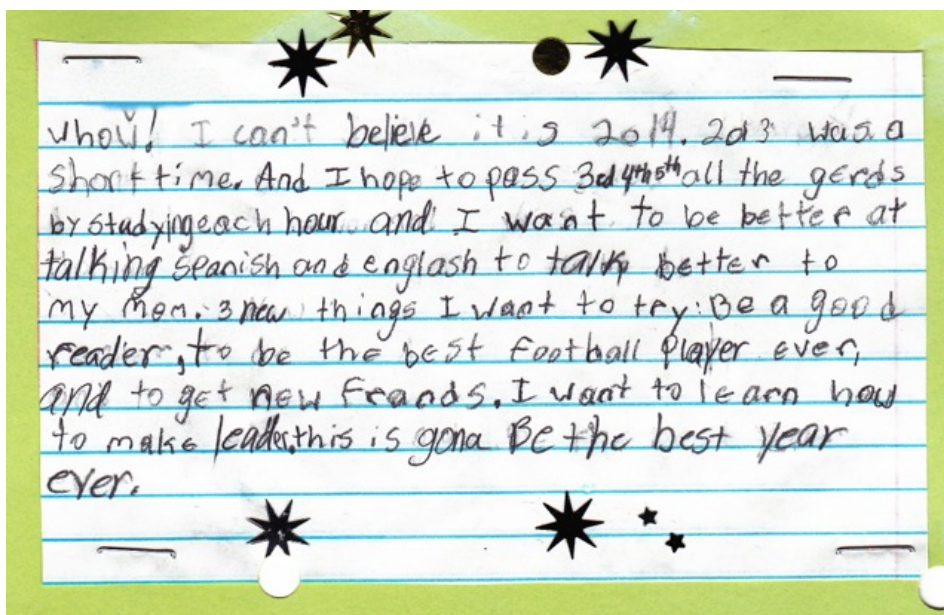 whow! I can't believe it is 2014. 2013 was a
short time. And I hope to pass 3rd 4th 5th all the gerds
by studying each hour and I want to be better at
talking spanish and englash to talk better to
my mom. 3 new things I want to try: Be a good
reader, to be the best football player ever,
and to get new frands. I want to learn how
to make leader. this is gona Be the best year
ever.